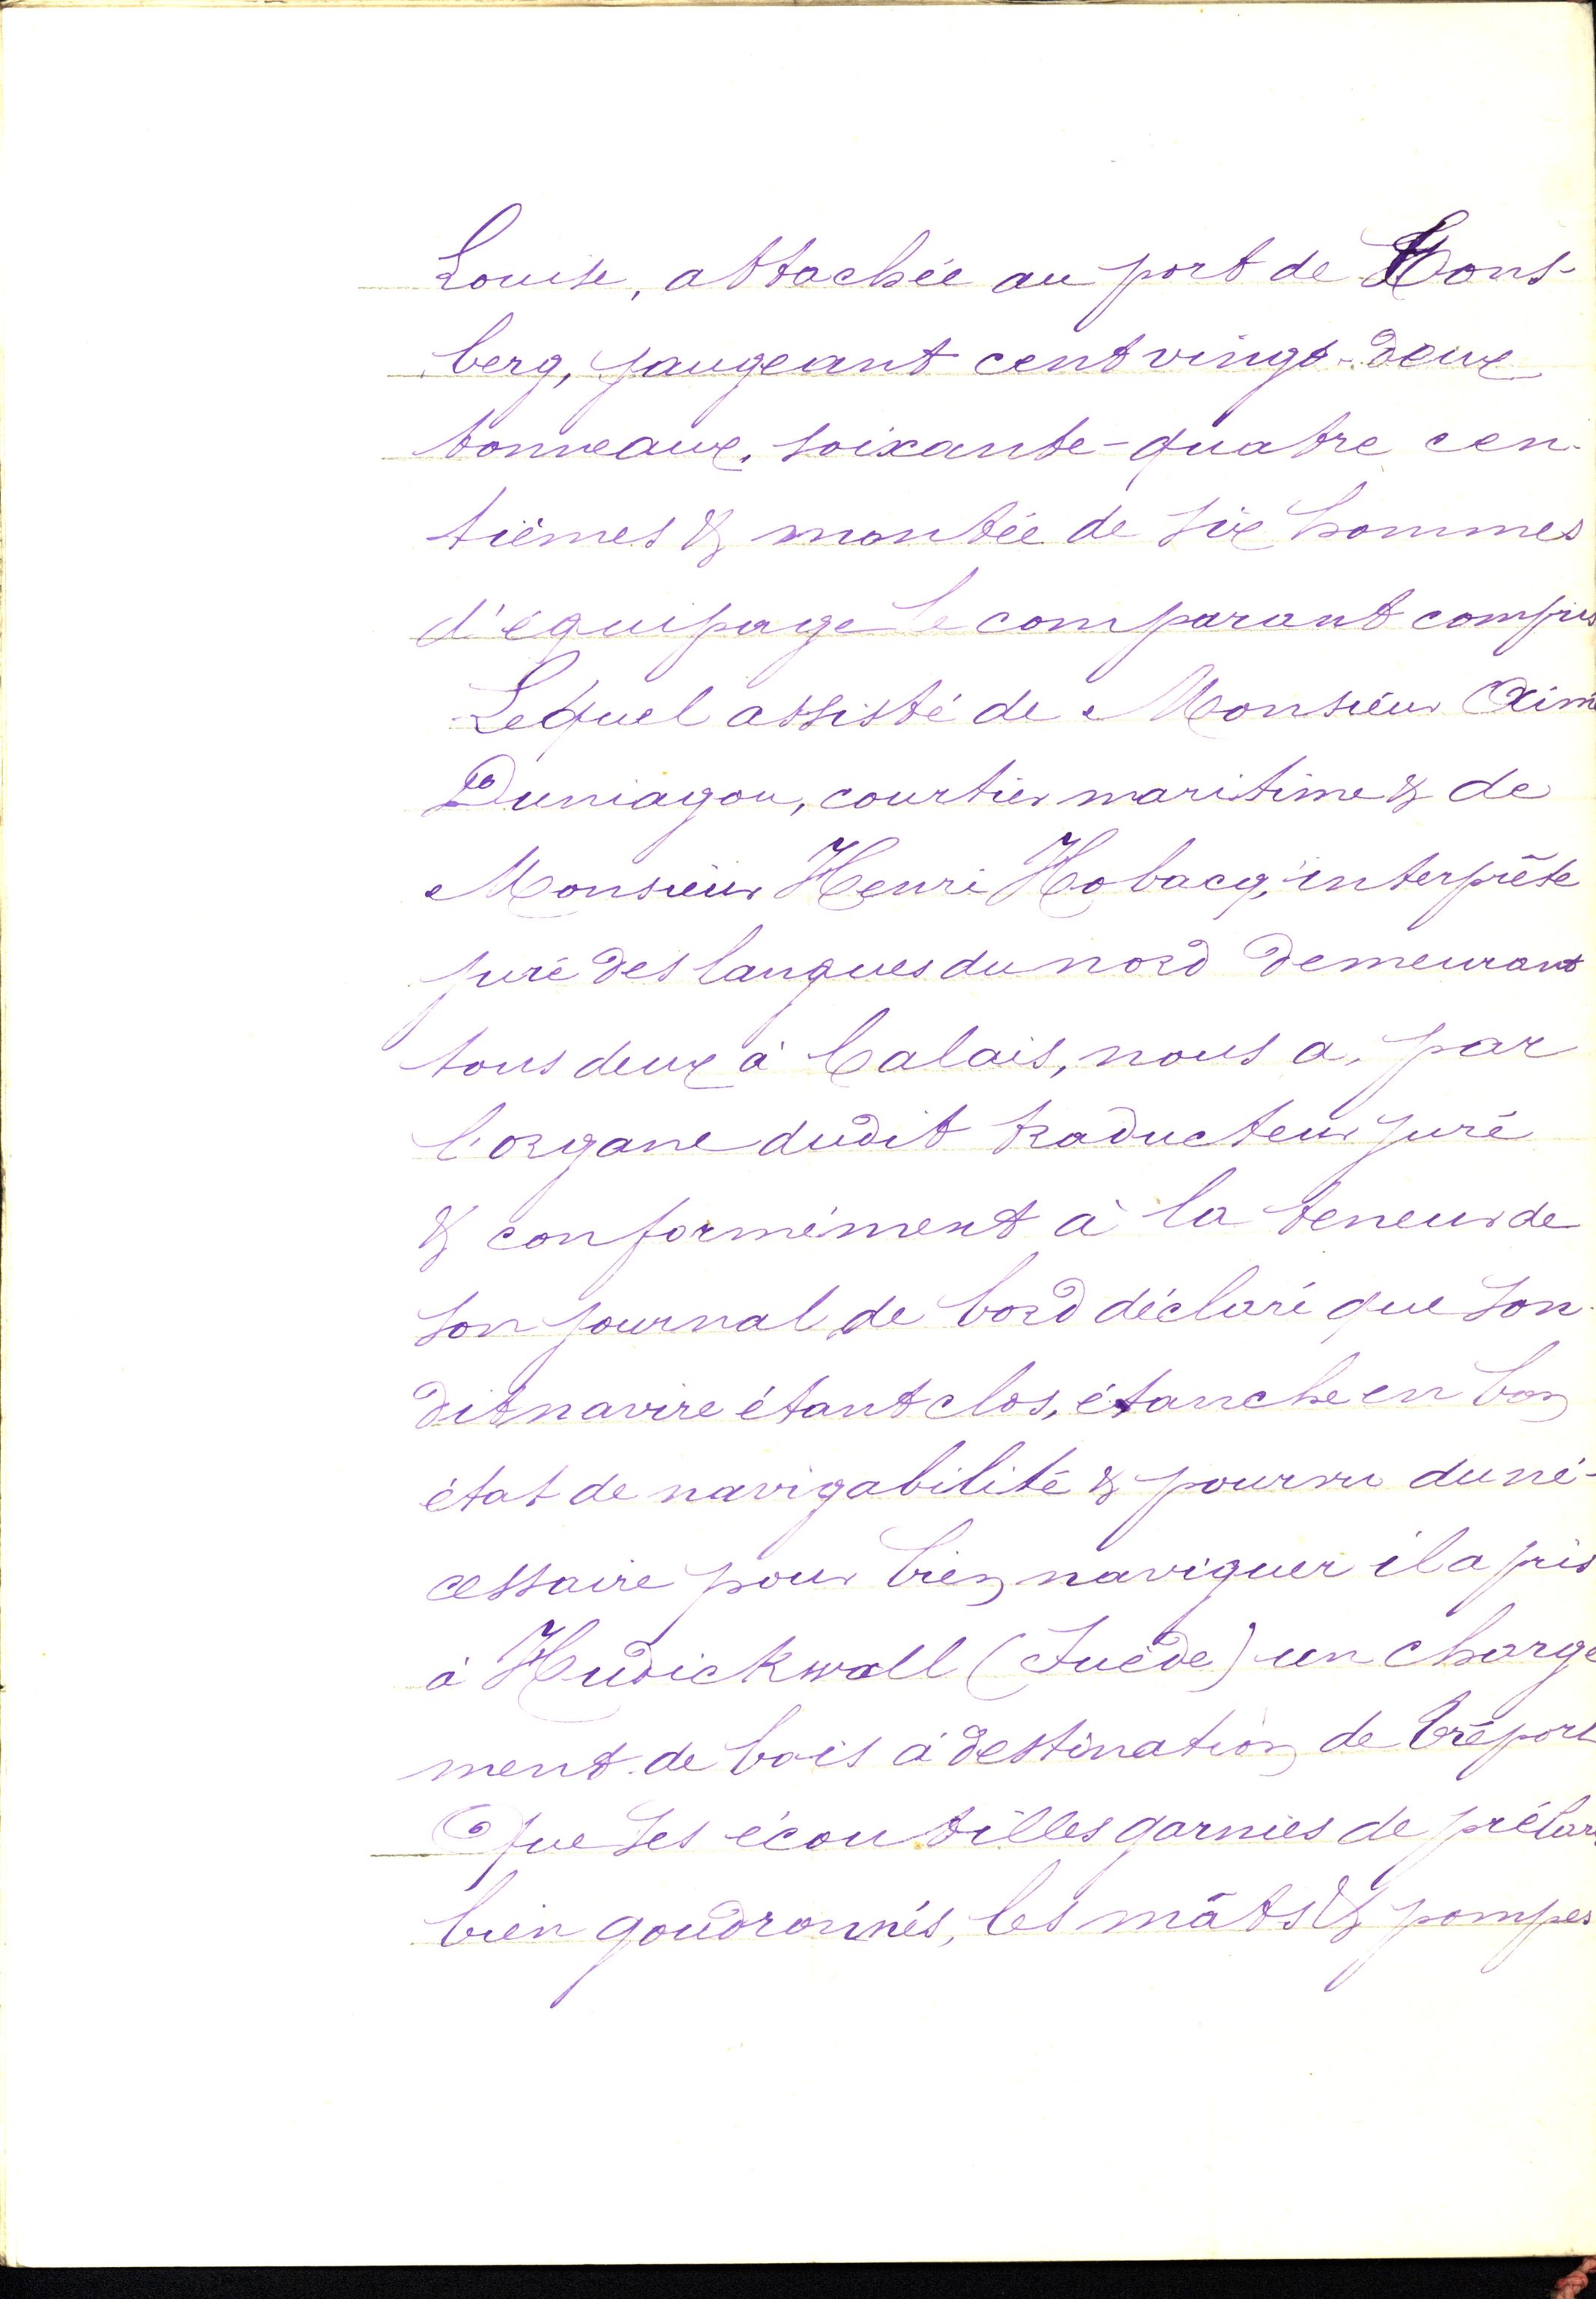 Louise, attachée au port de Tons-
berg, jaugeant cent vingt-deux
tonneaux, soixante-quatre cen-
tièmes & montée de six hommes
d'équipage le comparant compris
Lequel assisté de Monsieur Aimé
Duniagou, courtier maritime & de
Monsieur Henri Hobacq, interprête
juré des langues du nord demeurant
tous deux à Calais, nous a, par
l'organe dudit traducteur juré
& conformément à la teneur de
son journal de bord déclaré que son
dit navire étant clos, étanche en bon
état de navigabilité & pourvu du né-
cessaire pour bien naviguer il a pris
à Hudickwall (Suède) un charge
ment de bois à destination de Tréport
Que ses écoutilles garnies de prélar
bien goudronnés, les mâts & pompes